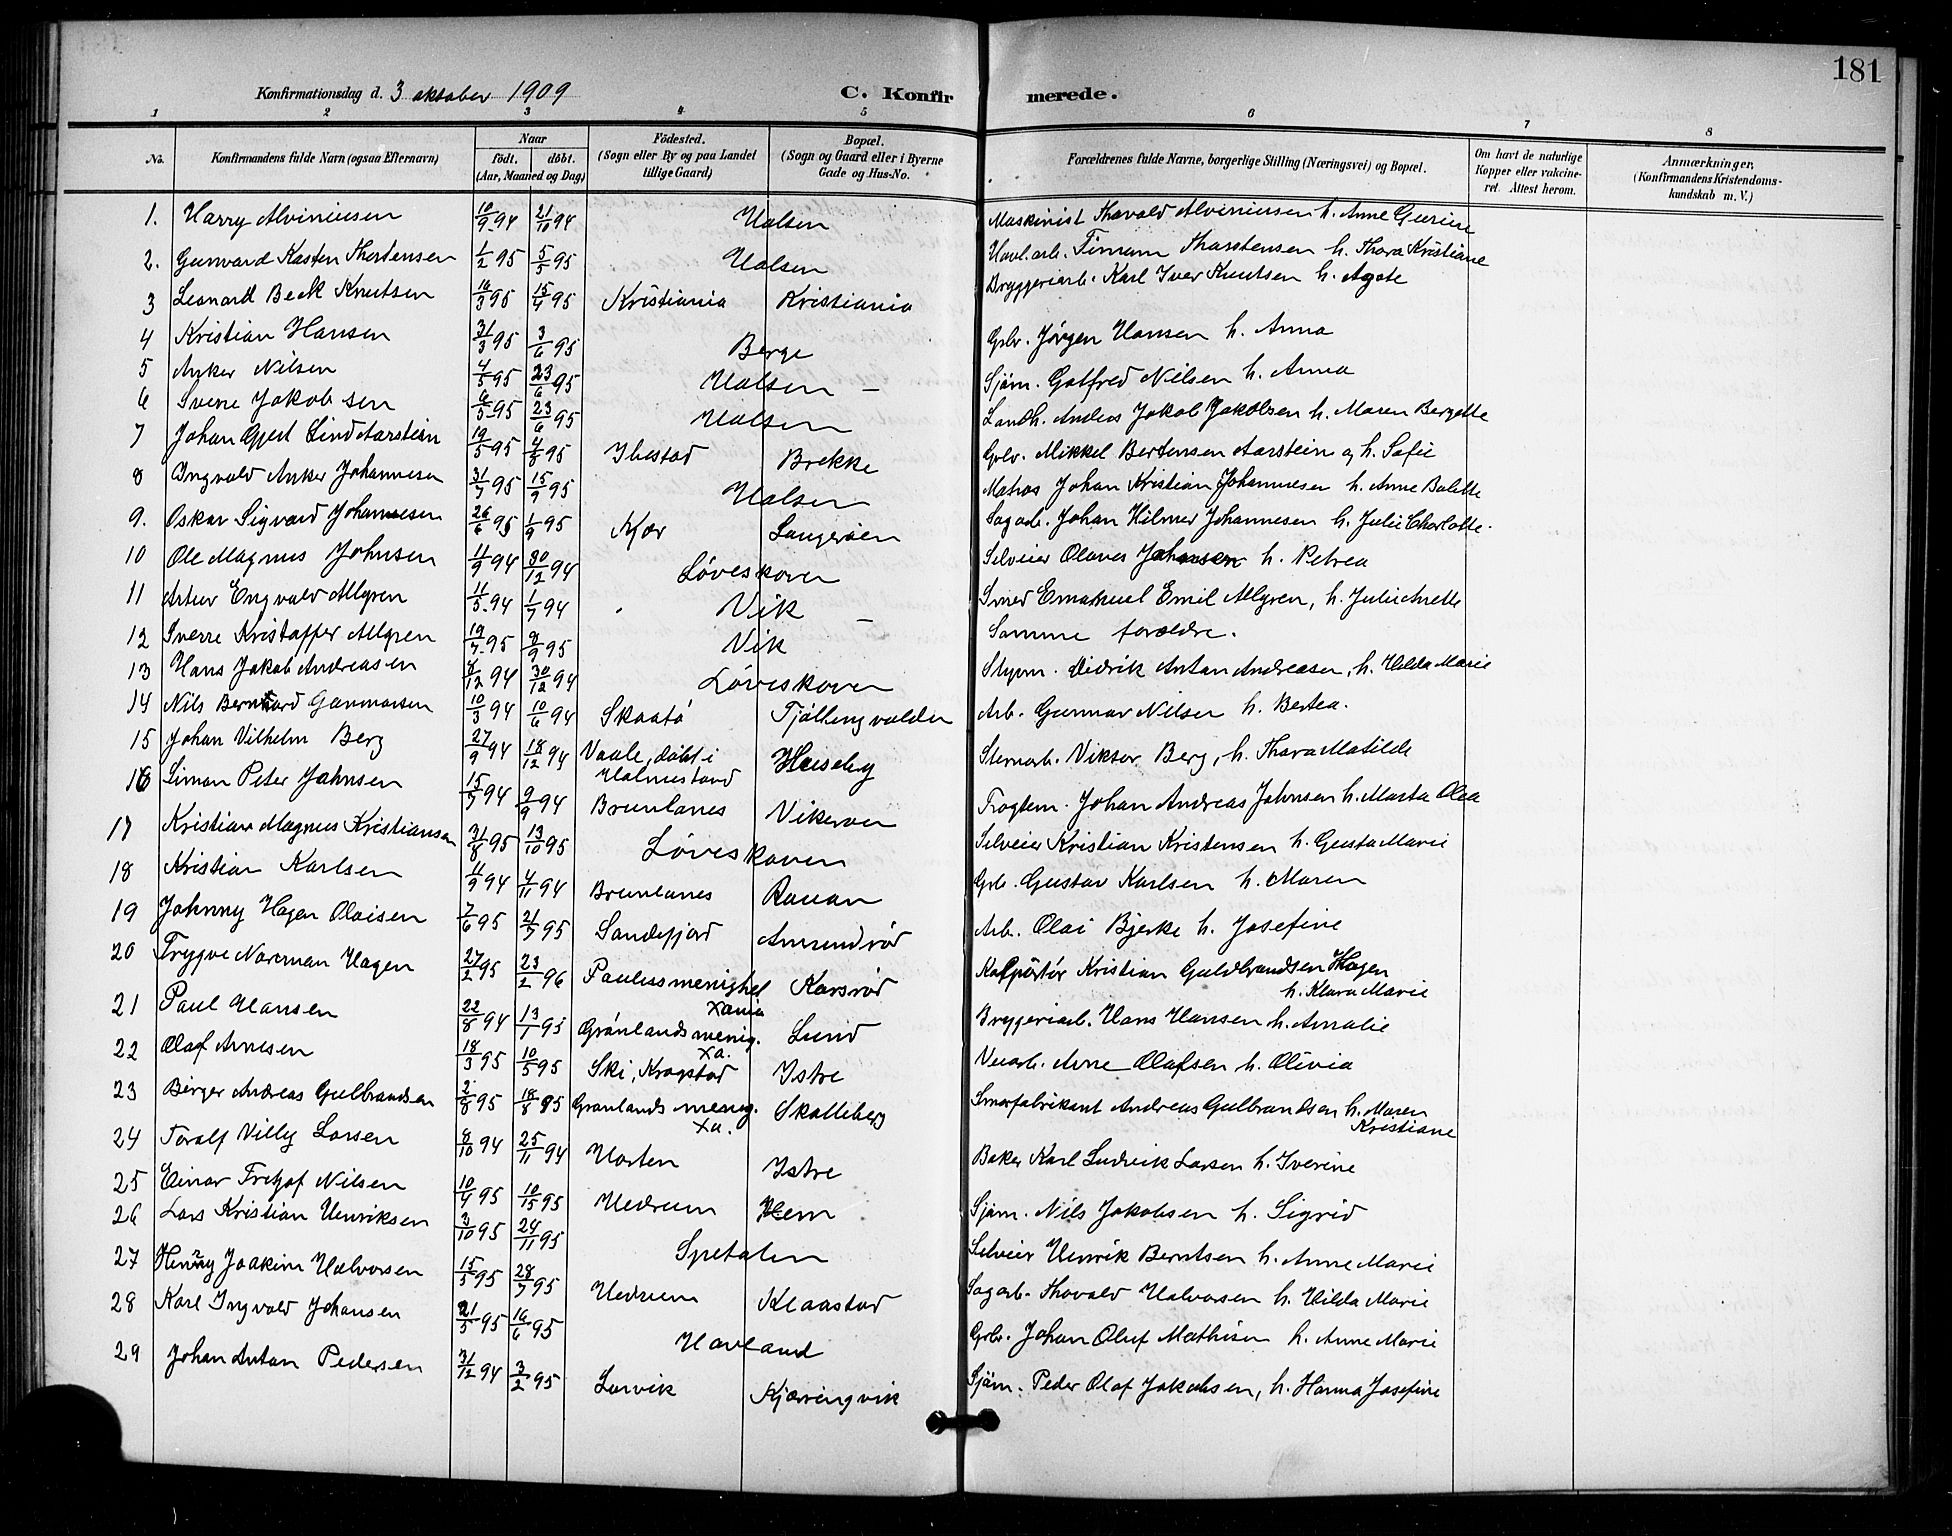 181
Konfirmationsdag d. 3 oktober 1909 C. Konfirmerede.
1 2 3 4 5 6 7 8
No. Konfirmandens fulde Navn (ogsaa Efternavn) Naar født. døbt. (Aar, Maaned og Dag) Födested. (Sogn eller By og paa Landet tillige Gaard) Bopæl. (Sogn og Gaard eller i Byerne Gade og Hus-No. Forældrenes fulde Navne, borgerlige Stilling (Næringsvei) og Bopæl. Om havt de naturlige Kopper eller vakcineret. Attest herom. Anmærkninger, (Konfirmandens Kristendomskundskab m. V.)
1. Harry Alviniusen 10/9 94 21/10 94 Halsen Maskinist Thorvald Alviniusen h. Anne Gurine
2. Gunvard Kasten Thorstensen 1/2 95 5/5 95 Halsen Havl.arb. Timann Thorstensen h. Thora Kristiane
3 Leonard Beck Knutsen 16/3 95 15/4 95 Kristiania Kristiania Bryggeriarb. Karl Iver Knutsen h. Agate
4 Kristian Hansen 31/3 95 3/6 95 Berge Gbr. Jörgen Hansen h. Anna
5 Anker Nilsen 4/5 95 23/6 95 Halsen – Sjöm. Gotfred Nilsen h. Anna
6 Svene Jakobsen 6/5 95 23/6 95 Halsen Landh. Anders Jakob Jakobsen h. Maren Bergette
7 Johan Gjert Lind Aarstein 19/5 95 4/8 95 Ibestad Brekke Gbr. Mikkel Bertensen Aarstein og h. Sofie
8 Ingvald Anker Johannesen 31/7 95 15/9 95 Halsen Matros Johan Kristian Johannesen h. Anne Bolette
9. Oskar Sigvard Johannesen 26/6 95 1/9 95 Kjær Langeröen Sagarb. Johan Hilmer Johannesen h. Julie Charlotte.
10 Ole Magnus Johnsen 11/9 94 30/12 94 Löveskoven Selveier Olaves Johansen h. Petrea
11 Artur Engvald Algren 11/5 94 1/7 94 Vik – Smed Emanuel Emil Algren, h. Julie Anette
12 Sverre Kristoffer Algren 19/7 95 8/9 95 Vik Samme forældre.
13 Hans Jakob Andreasen 8/12 94 30/12 94 Löveskoven Styrm. Didrik Anton Andreasen, h. Hilda Marie
14 Nils Bernhard Gunnarsen 10/3 94 10/6 94 Skaatö Tjöllingvolden Arb. Gunnar Nilsen h. Bertea.
15 Johan Vilhelm Berg 27/9 94 18/12 94 Vaale, döbt i Holmestrand Huseby Stenarb. Viktor Berg, h. Thora Matilde
16 Simon Peter Johnsen 15/7 94 9/9 94 Brunlanes Vikeroen Fragtem. Johan Andreas Johnsen h. Marta Olea
17 Kristian Magnus Kristiansen 31/8 95 13/10 95 Löveskoven Selveier Kristian Kristensen h. Gusta Marie
18 Kristian Karlsen 11/9 94 4/11 94 Brunlanes Rauan Gbr. Gustav Karlsen h. Maren
19 Johnny Hagen Olaisen 7/6 95 21/7 95 Sandefjord Amundröd Arb. Olai Bjerke h. Josefine
20 Trygve Norman Hagen 27/2 95 23/2 96 Paulusmenighet Xania Korsröd Kolportör Kristian Guldbrandsen Hagen h. Klara Marie
21 Paul Hansen 22/8 94 13/1 95 Grönlandsmenig. Xa. Lund Bryggeriarb. Hans Hansen h. Amalie
22 Olaf Arnesen 18/3 95 10/5 95 Ski, Kragstad Istre Veiarb. Arne Olafsen h. Olivia
23 Birger Andreas Gulbrandsen 2/8 95 18/8 95 Grønlands menig. Xa. Skalleberg Smörfabrikant Andreas Gulbrandsen h. Maren Kristiane
24 Toralf Villy Larsen 8/10 94 25/11 94 Horten Istre Baker Karl Ludvik Larsen h. Iverine
25 Einar Fritjof Nilsen 10/4 95 10/15 95 Hedrum Hem Sjöm. Nils Jakobsen h. Sigrid
26 Lars Kristian Henriksen 3/10 95 24/11 95 Spetalen Selveier Henrik Berntsen h. Anne Marie
27 Henry Joakim Halvorsen 15/5 95 28/7 95 Hedrum Klaastad Sagarb. Thorvald Halvorsen h. Hilda Marie
28 Karl Ingvald Johansen 21/5 95 16/6 95 Havland Gbr. Johan Oluf Mathisen h. Anne Marie
29 Johan Anton Pedersen 31/12 94 3/2 95 Larvik Kjærringvik Sjöm. Peder Olaf Jakobsen, h. Hanna Josefine